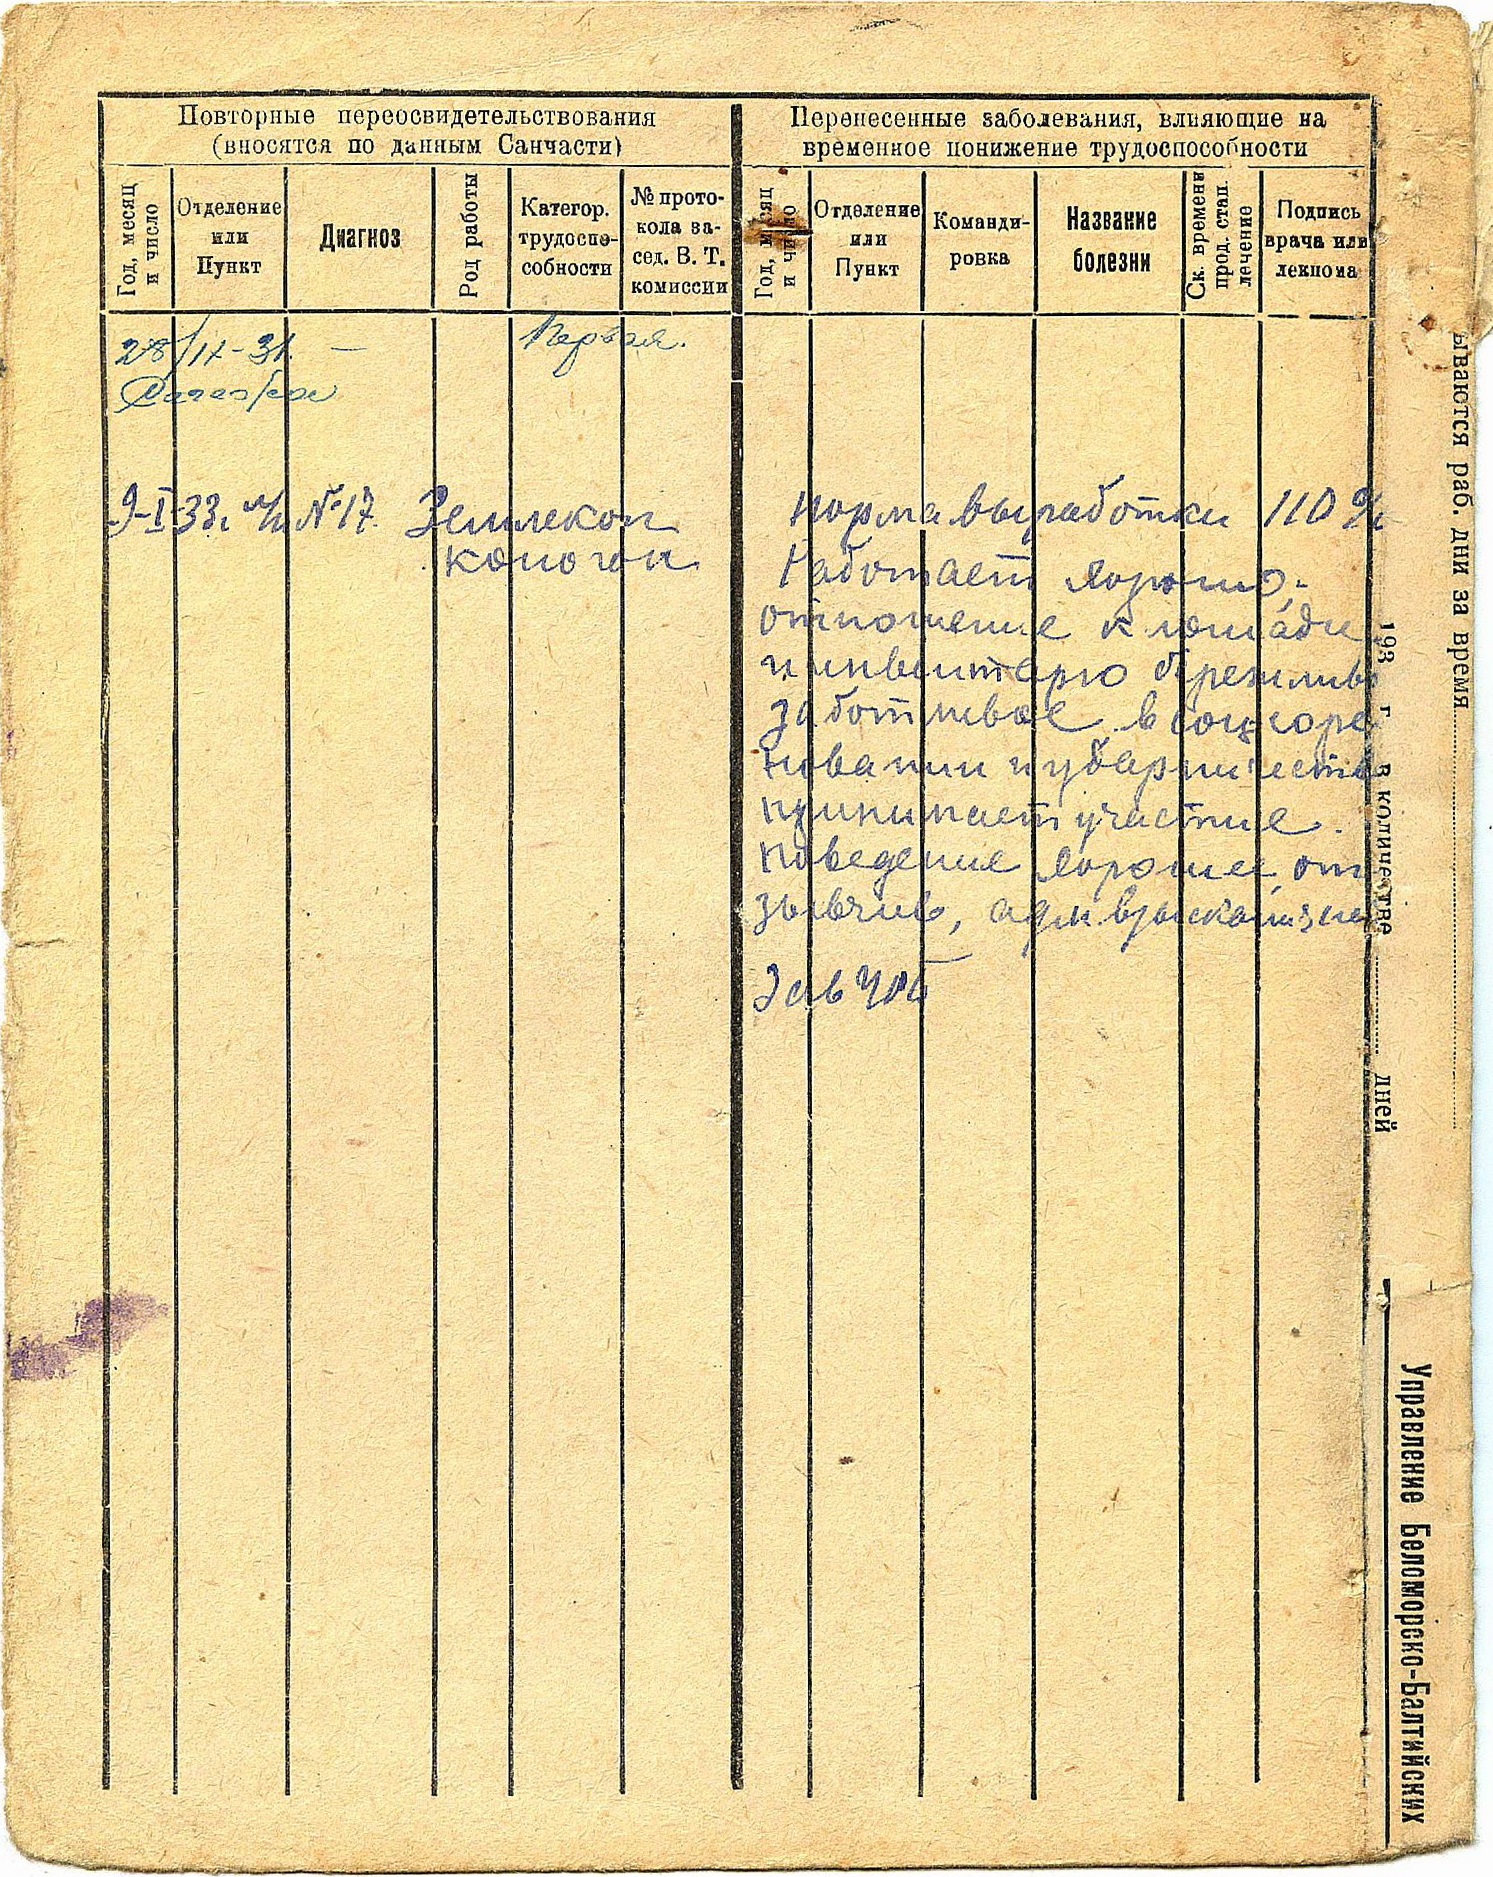 Повторные переосвидетельствования
(вносятся по данным Санчасти)
Год, месяц
и число
Отделение
или
Пункт
Диагноз
Род работы
Категор.
трудоспо-
собности
№ прото-
кола за-
сед. В. Т.
комиссии
Перенесенные заболевания, влияющие на
временное понижение трудоспособности
Год, месяц
и число
Отделение
или
Пункт
Команди-
ровка
Название
болезни
Ск. времени
прод. стац.
лечение
Подпись
врача или
лекпома
28/IX-31. — Первая.
9-I-33. №17 Землекоп
коногон
норма выработки 110%
Работает хорошо,
отношение к лошади
и инвентарю бережливо
заботливое, в соцсорев
новании и ударничестве
принимает участие.
Поведение хорошее, от
зывчив, адм взысканиям не
Зав
ываются раб. дни за время
193 г. в количестве дней
Управление Беломорско-Балтийских